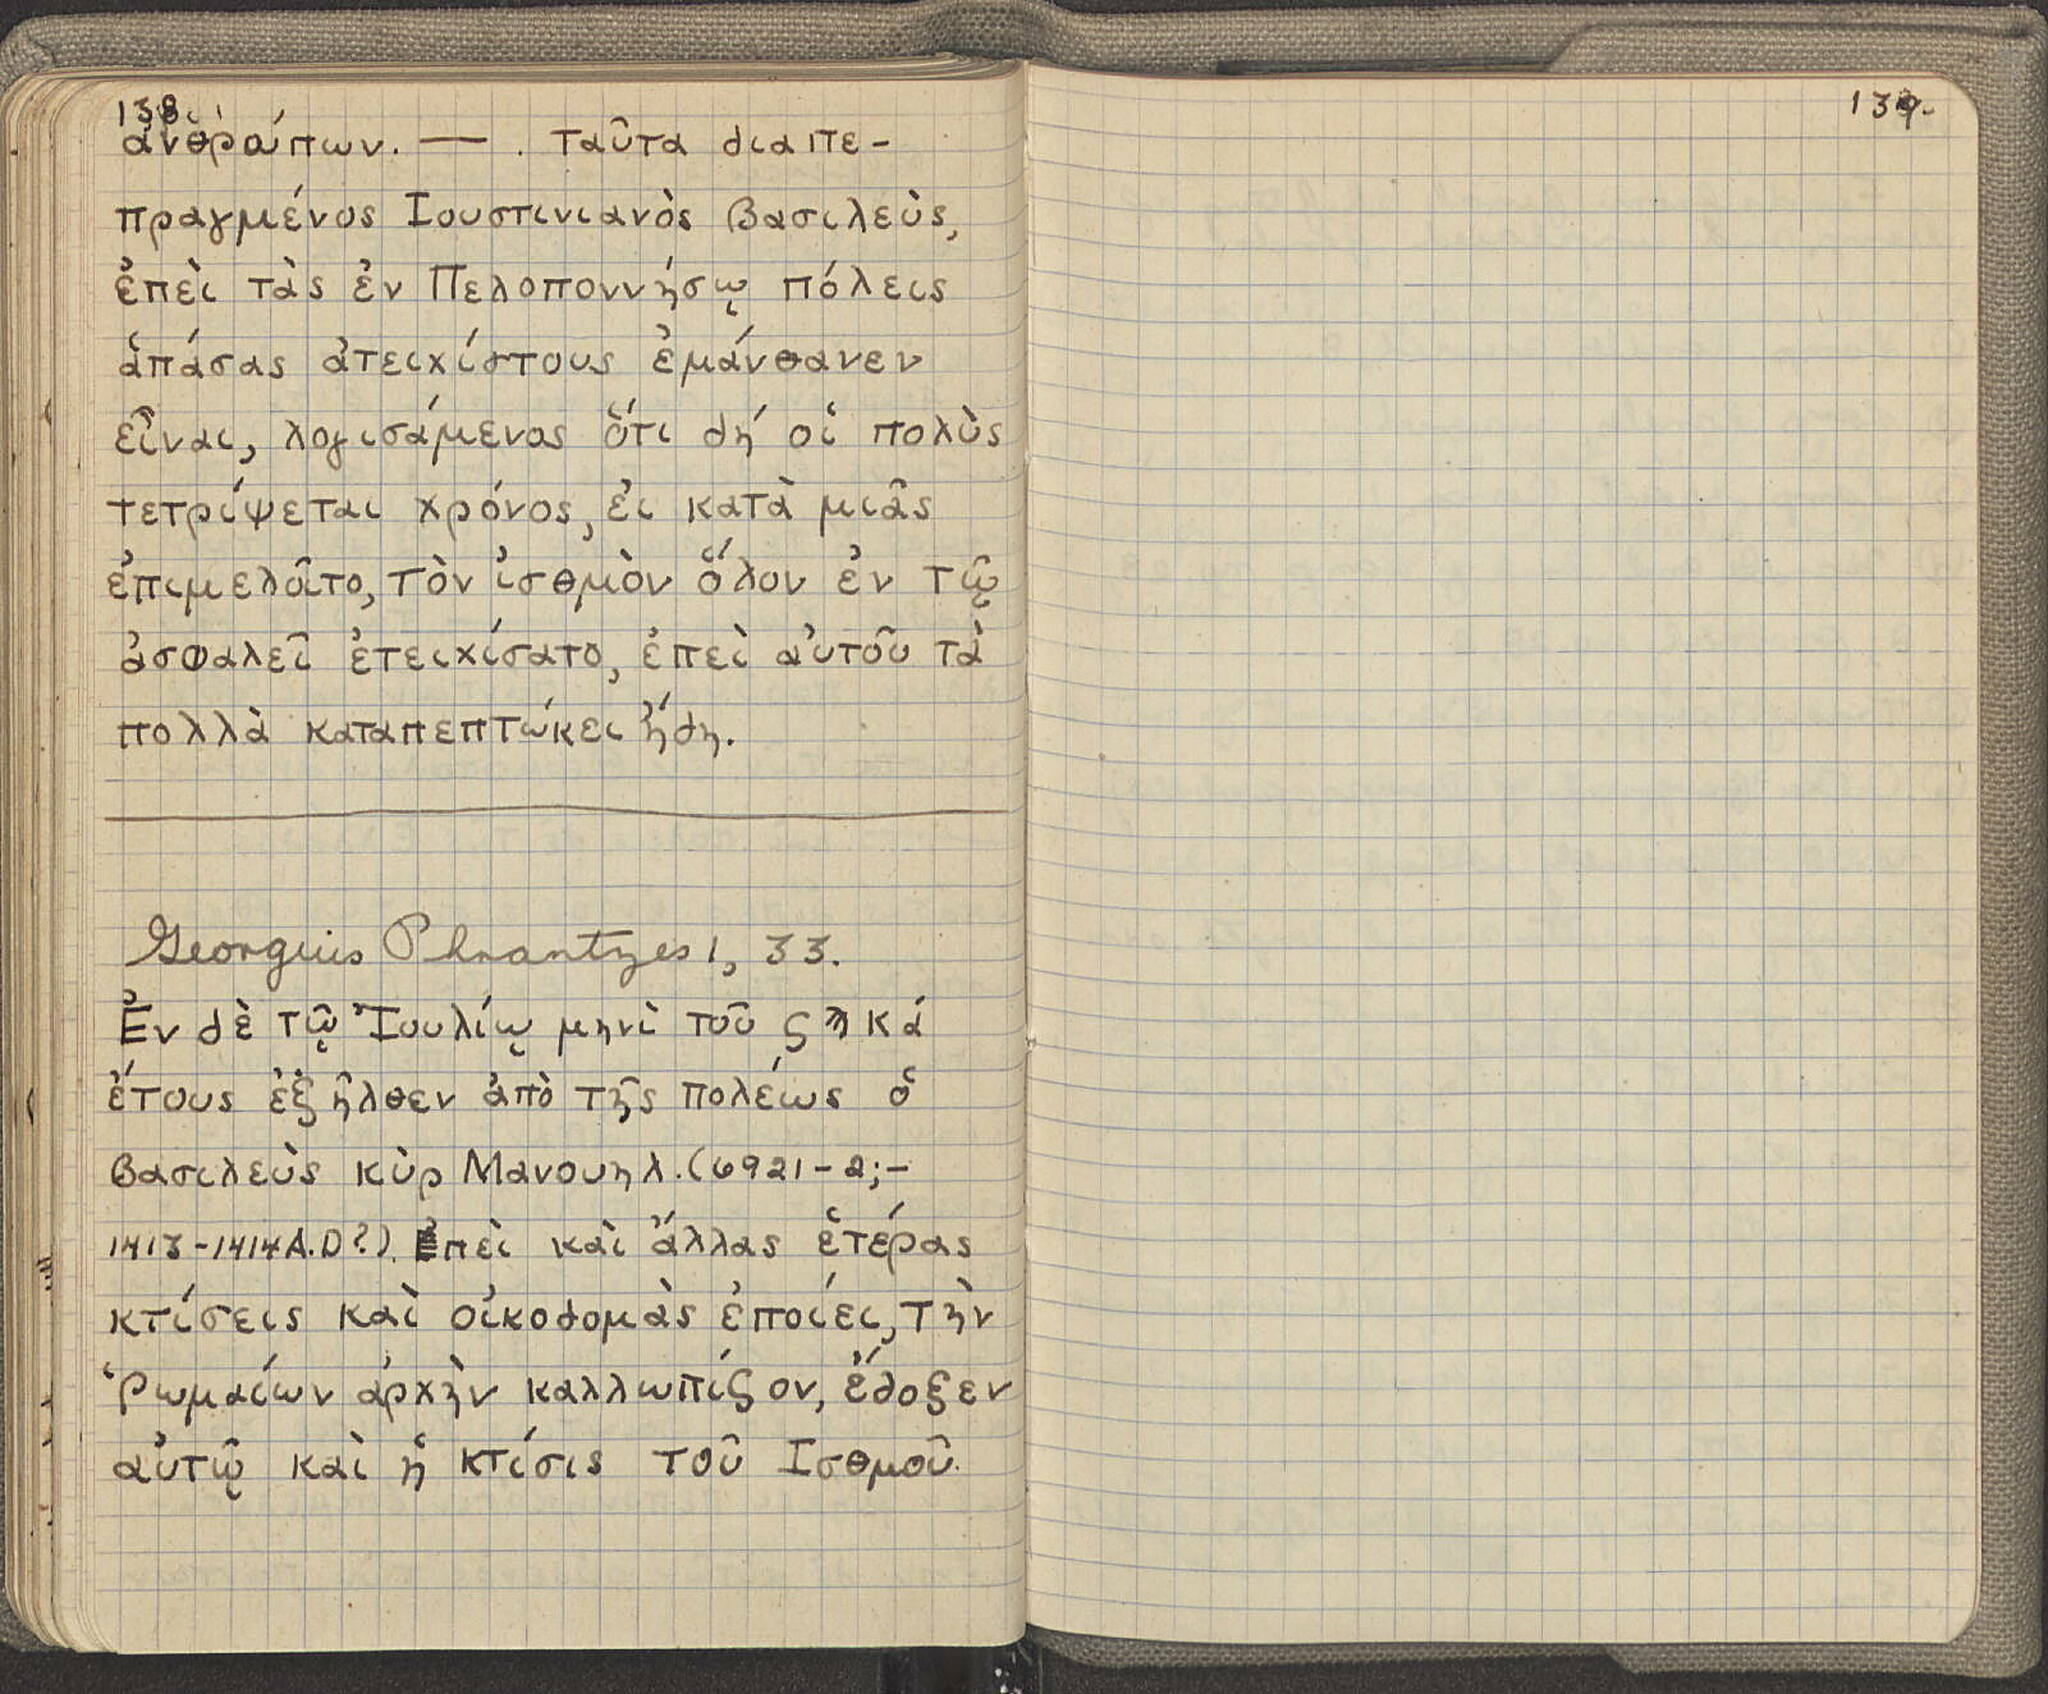 138.
ἀνθρώπων. — . ταῦτα διαπε-
πραγμένος Ιουστινιανὸς βασιλεὺς,
ἐπεὶ τὰς ἐν Πελοποννήσῳ πόλεις
ἁπάσας ἀτειχίστους ἐμάνθανεν
εἶναι, λογισάμενος ὅτι δή οἱ πολὺς
τετρίψεται χρόνος, ἐι κατὰ μιᾶς
ἐπιμελοῖτο, τὸν ἰσθμὸν ὅλον ἐν τῷ
ἀσφαλεῖ ἐτειχίσατο, ἐπεὶ αὐτοῦ τὰ
πολλὰ καταπεπτώκει ἤδη.
Georgius Phrantzes 1, 33.
Ἐν δὲ τῷ Ἰουλίῳ μηνὶ τοῦ ϛϡκά
ἔτους ἐξῆλθεν ἀπὸ τῆς πολέως ὁ
βασιλεὺς κὺρ Μανουηλ. (6921-2;-
1413-1414 A.D?). Ἐπεὶ καὶ ἄλλας ἑτέρας
κτίσεις καὶ οἰκοδομὰς ἐποίει, τὴν
Ῥωμαίων ἀρχὴν καλλωπίζον, ἔδοξεν
αὐτῷ καὶ ἡ κτίσις τοῦ Ισθμοῦ.
139.